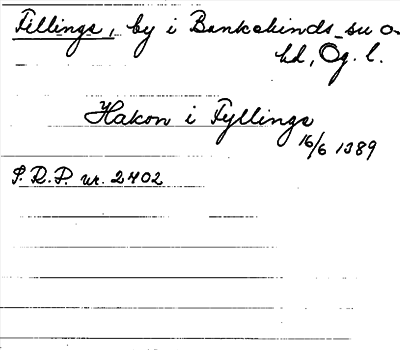 Fillings, by i Bankekinds su o
hd, Ög. l.
Hakon i Fyllings
16/6 1389
S.R.P. nr. 2402